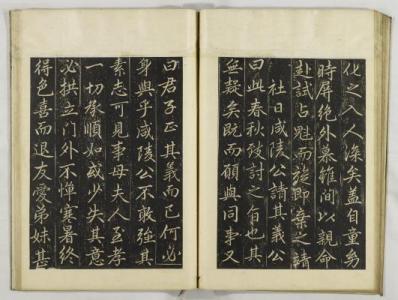 化之人人深矣蓋自童幼
時屏絕外慕雖間以親命
赴試占甦而旋即棄之請
社日咸陵公請其義公
曰此春秋致討之旨也其
無疑矣既而顧與同事又
曰君子正其義而已何必
身與乎咸陵公不敢強其
素志可見事母夫人至孝
一切承順如或少失其意
必拱立門外不憚寒暑終
得色喜而退友愛弟妹甚